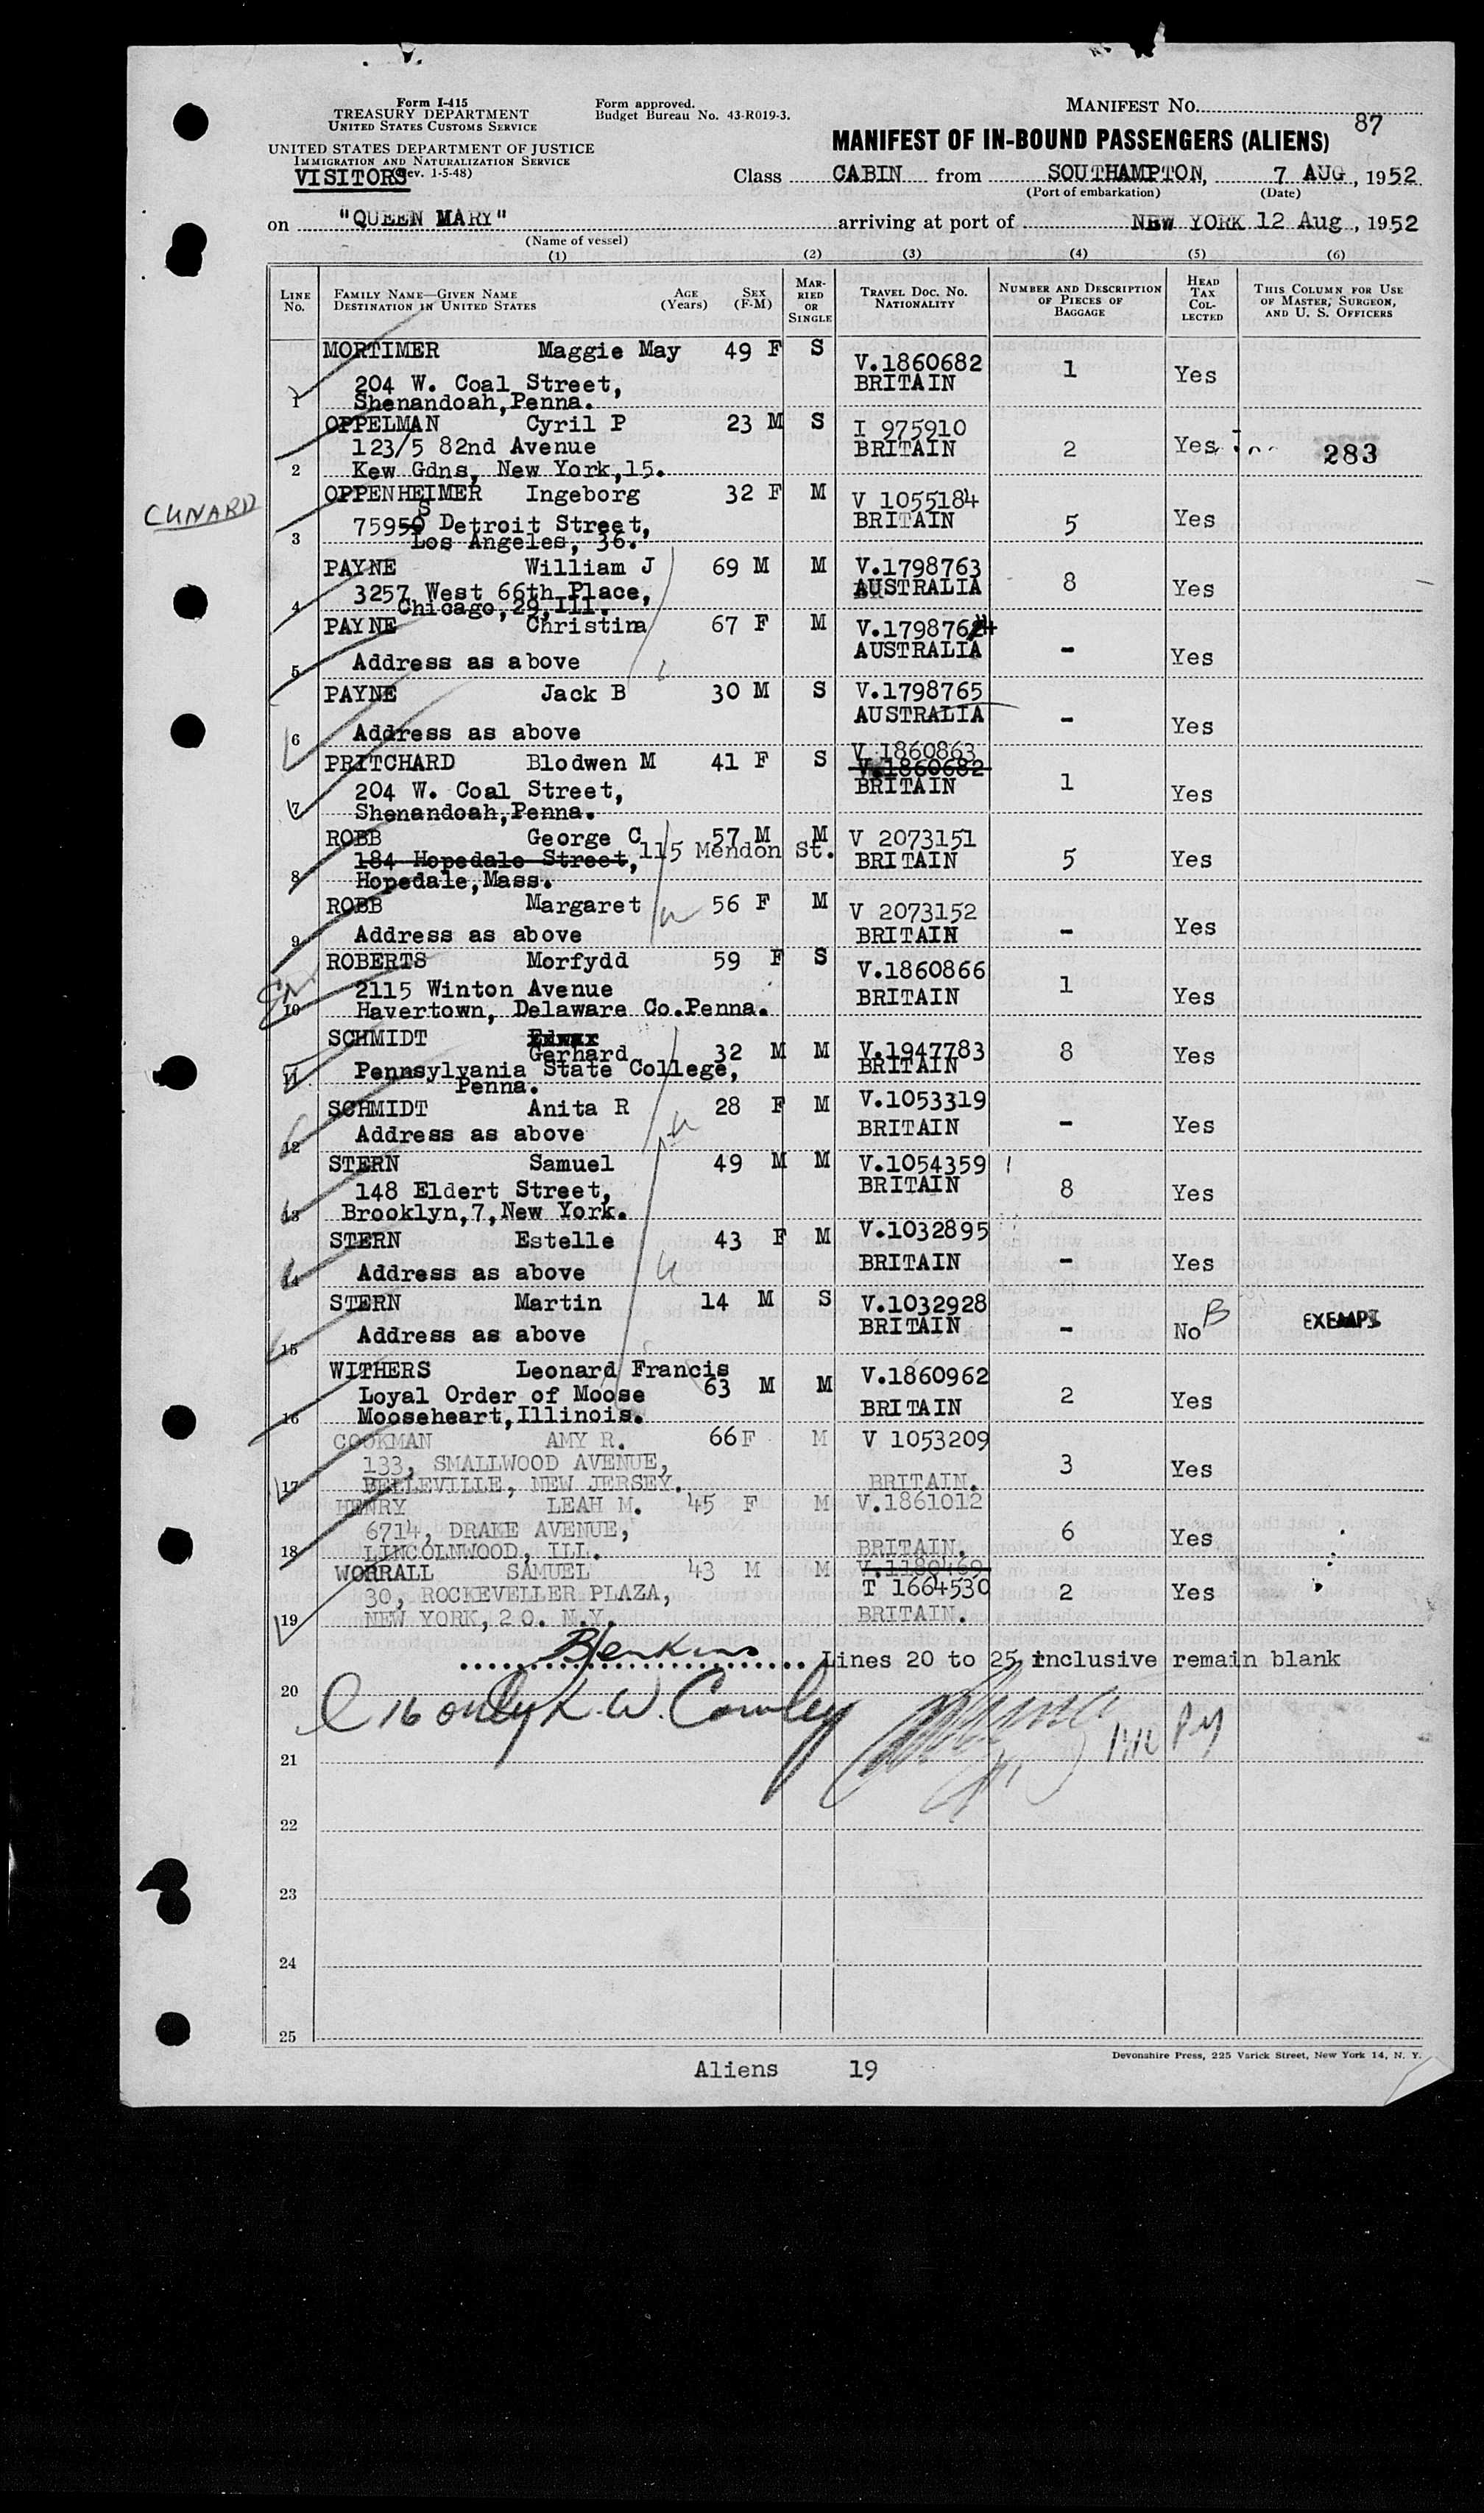 Form I-415
TREASURY DEPARTMENT
UNITED STATES CUSTOMS SERVICE
UNITED STATES DEPARTMENT OF JUSTICE
IMMIGRATION AND NATURALIZATION SERVICE
(Rev. 1-5-48)
VISITORS
Form approved.
Budget Bureau No. 43-R019-3.
MANIFEST NO.
87
MANIFEST OF IN-BOUND PASSENGERS (ALIENS)
Class CABIN from SOUTHAMPTON, 7 AUG, 1952
(Port of embarkation) (Date)
on "QUEEN MARY" arriving at port of NEW YORK 12 Aug, 1952
(Name of vessel)
(1) (2) (3) (4) (5) (6)
LINE No. FAMILY NAME—GIVEN NAME DESTINATION IN UNITED STATES AGE (Years) SEX (F-M) MARRIED OR SINGLE TRAVEL DOC. NO. NATIONALITY NUMBER AND DESCRIPTION OF PIECES OF BAGGAGE HEAD TAX COLLECTED THIS COLUMN FOR USE OF MASTER, SURGEON, AND U. S. OFFICERS
MORTIMER Maggie May 49 F S V.1860682
204 W. Coal Street, BRITAIN 1 Yes
1 Shenandoah,Penna.
OPPELMAN Cyril P 23 M S I 975910
123/5 82nd Avenue BRITAIN 2 Yes 283
2 Kew Gdns, New York,15.
CUNARD
OPPENHEIMER Ingeborg 32 F M V 1055184
S
75950 Detroit Street, BRITAIN 5 Yes
3 Los Angeles, 36.
PAYNE William J 69 M M V.1798763
3257 West 66th Place, AUSTRALIA 8 Yes
4 Chicago,29,Ill.
PAYNE Christina 67 F M V.1798764
5 Address as above AUSTRALIA - Yes
PAYNE Jack B 30 M S V.1798765
6 Address as above AUSTRALIA - Yes
PRITCHARD Blodwen M 41 F S V 1860863
V.1860682
204 W. Coal Street, BRITAIN 1 Yes
7 Shenandoah,Penna.
ROBB George C 57 M M V 2073151
184 Hopedale Street, 115 Mendon St. BRITAIN 5 Yes
8 Hopedale,Mass.
ROBB Margaret 56 F M V 2073152
9 Address as above BRITAIN - Yes
ROBERTS Morfydd 59 F S V.1860866
2115 Winton Avenue BRITAIN 1 Yes
10 Havertown, Delaware Co.Penna.
SCHMIDT
Gerhard 32 M M V.1947783 8 Yes
11 Pennsylvania State College, BRITAIN
Penna.
SCHMIDT Anita R 28 F M V.1053319
12 Address as above BRITAIN - Yes
STERN Samuel 49 M M V.1054359
148 Eldert Street, BRITAIN 8 Yes
13 Brooklyn,7,New York.
STERN Estelle 43 F M V.1032895
14 Address as above BRITAIN - Yes
STERN Martin 14 M S V.1032928
15 Address as above BRITAIN - No B EXEMPT
WITHERS Leonard Francis 63 M M V.1860962
Loyal Order of Moose BRITAIN 2 Yes
16 Mooseheart,Illinois.
COOKMAN AMY R. 66 F M V 1053209
133, SMALLWOOD AVENUE, 3 Yes
17 BELLEVILLE, NEW JERSEY. BRITAIN.
HENRY LEAH M. 45 F M V.1861012
6714, DRAKE AVENUE, 6 Yes
18 LINCOLNWOOD, ILL. BRITAIN.
WORRALL SAMUEL 43 M M V.1180469
30, ROCKEVELLER PLAZA, T 1664530 2 Yes
19 NEW YORK,20. N.Y. BRITAIN.
BJenkins Lines 20 to 25 inclusive remain blank
20
16 only K.W. Cowley
21
22
23
24
25
Devonshire Press, 225 Varick Street, New York 14, N. Y.
Aliens 19